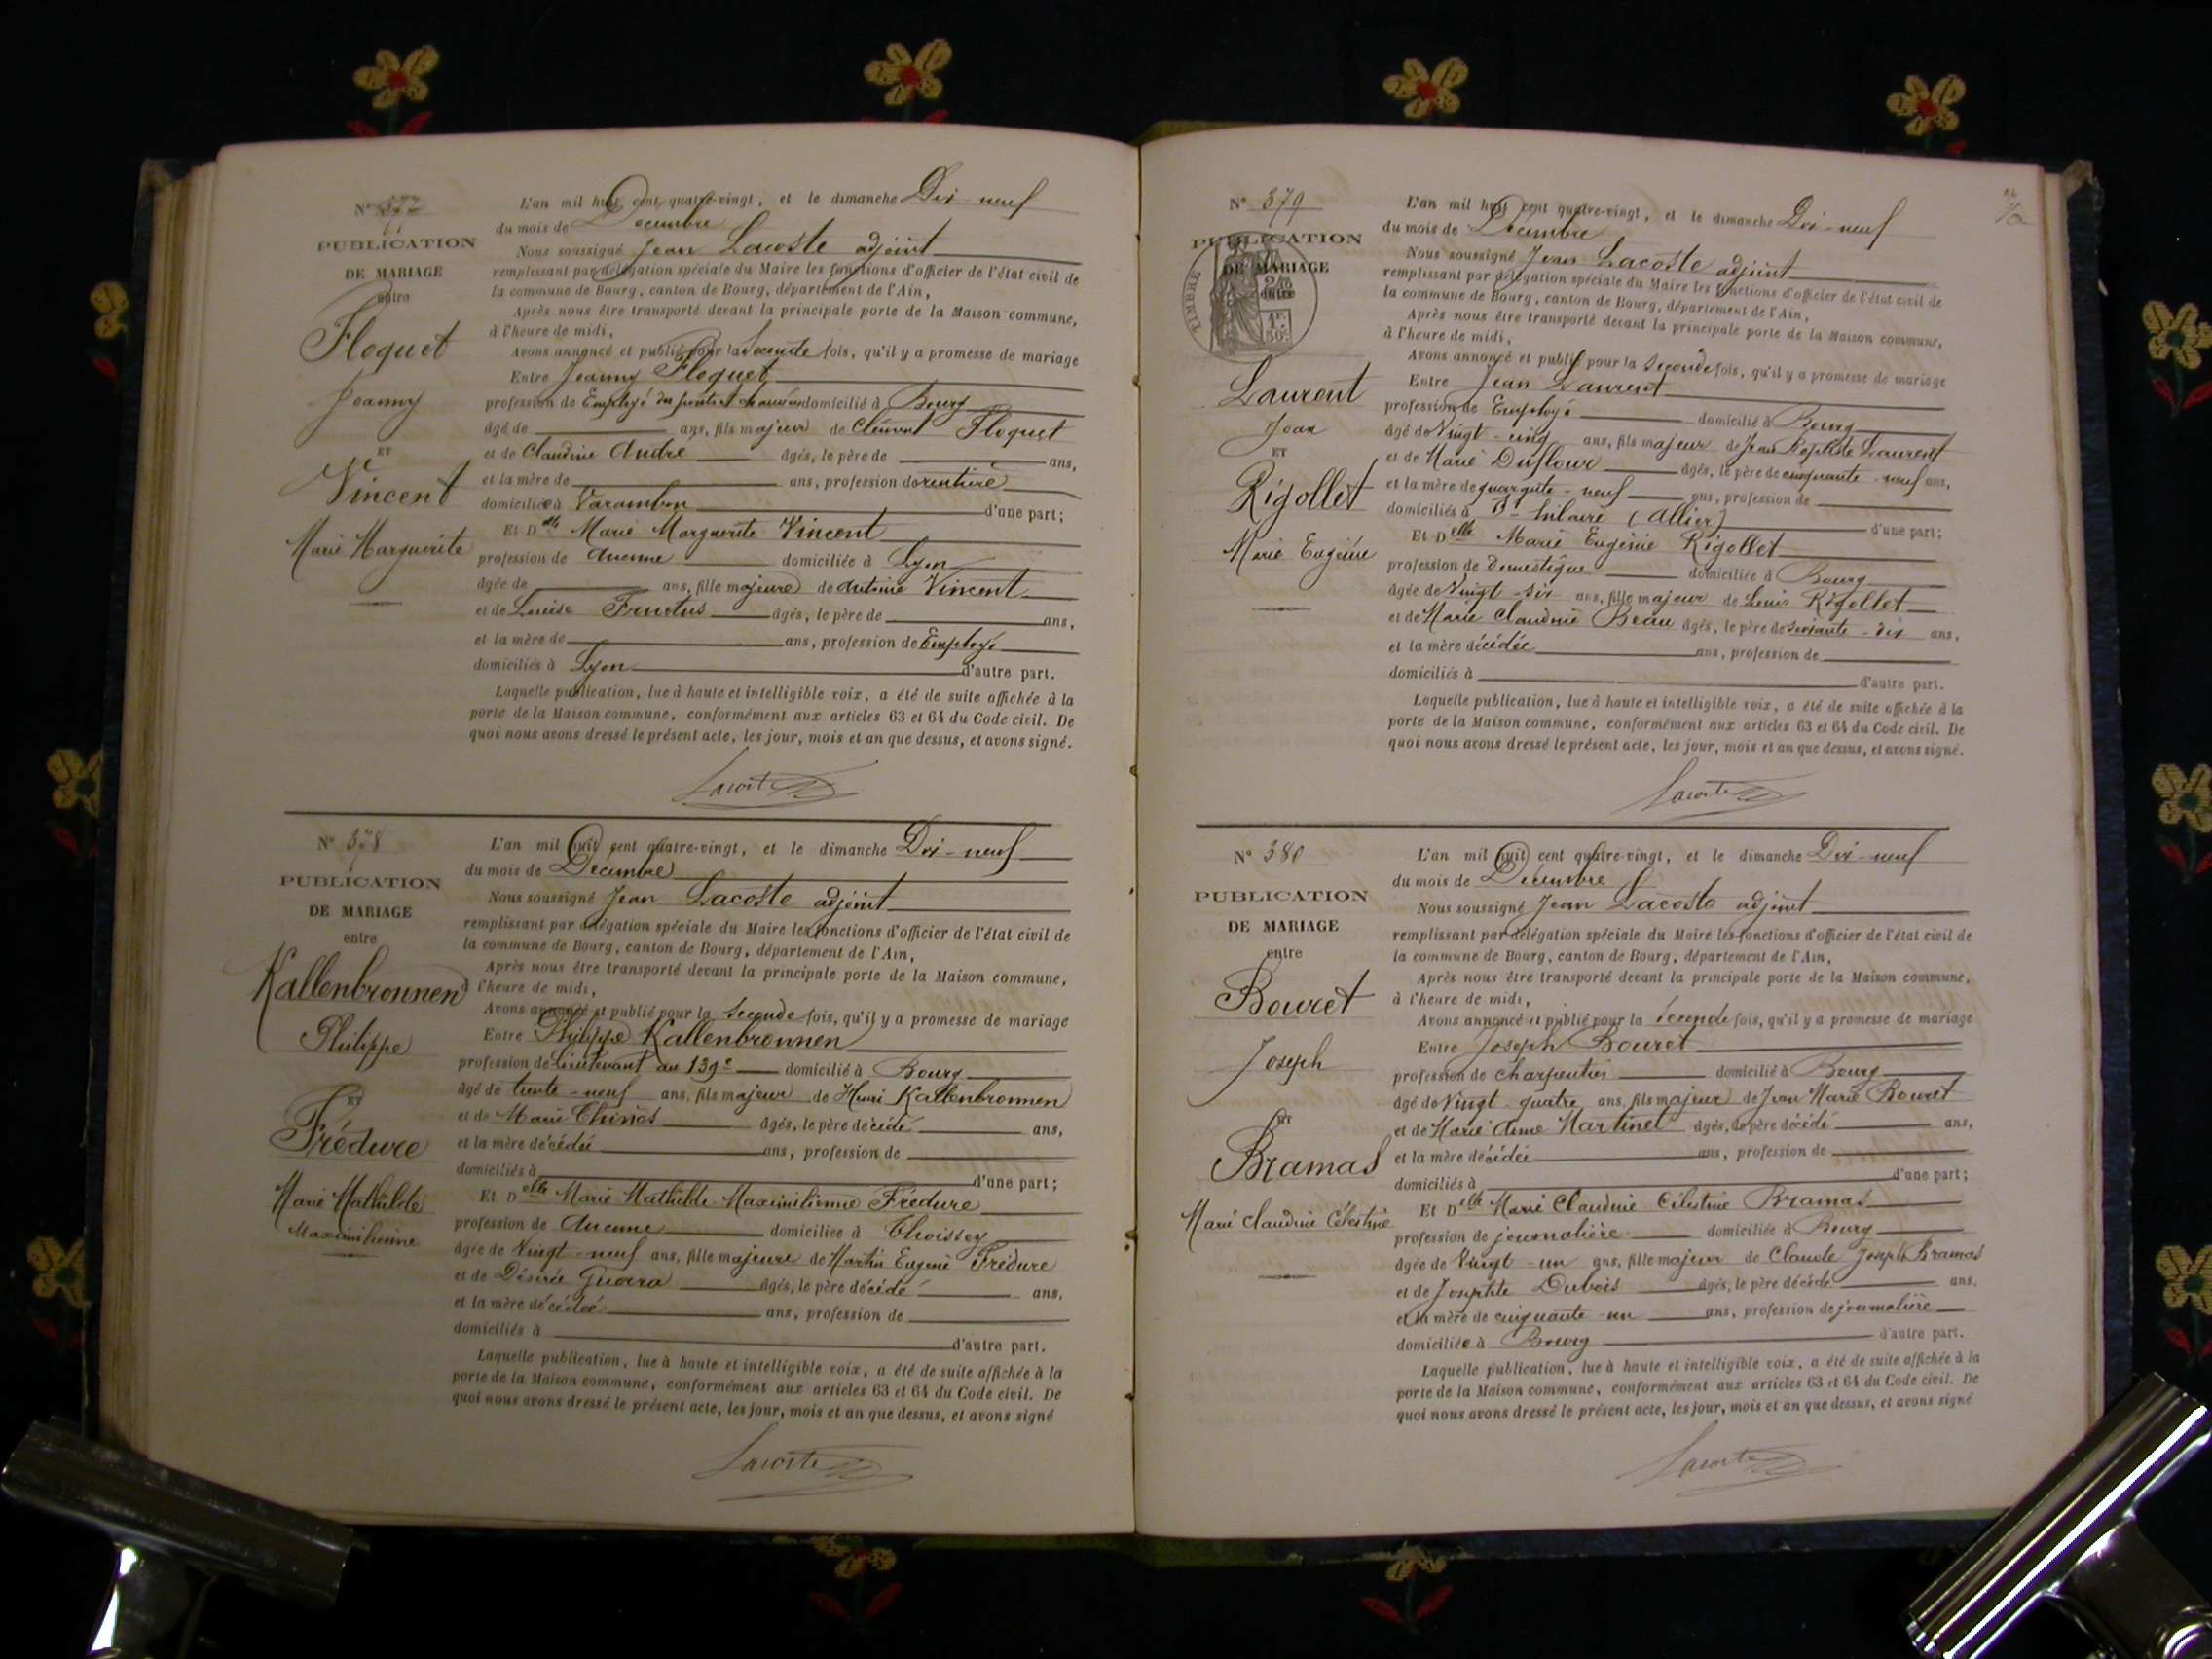 N° 377
PUBLICATION
DE MARIAGE
entre
Floquet
Joanny
ET
Vincent
Marie Marguerite
L'an mil huit cent quatre-vingt, et le dimanche Dix-neuf
du mois de Décembre
Nous soussigné Jean Lacoste adjoint
remplissant par délégation spéciale du Maire les fonctions d'officier de l'état civil de
la commune de Bourg, canton de Bourg, département de l'Ain,
Après nous être transporté devant la principale porte de la Maison commune,
à l'heure de midi,
Avons annoncé et publié pour la Seconde fois, qu'il y a promesse de mariage
Entre Joanny Floquet
profession de Employé des ponts et chaussées domicilié à Bourg
âgé de ans, fils majeur de Clément Floquet
et de Claudine André âgés, le père de ans,
et la mère de ans, profession de rentière
domiciliée à Varambon d'une part;
Et Dlle Marie Marguerite Vincent
profession de Aucune domiciliée à Lyon
âgée de ans, fille majeure de Antoine Vincent
et de Louise Fructus âgés, le père de ans,
et la mère de ans, profession de Employé
domiciliés à Lyon d'autre part.
Laquelle publication, lue à haute et intelligible voix, a été de suite affichée à la
porte de la Maison commune, conformément aux articles 63 et 64 du Code civil. De
quoi nous avons dressé le présent acte, les jour, mois et an que dessus, et avons signé.
Lacoste
N° 378
PUBLICATION
DE MARIAGE
entre
Kallenbronnen
Philippe
ET
Frédure
Marie Mathilde
Maximilienne
L'an mil huit cent quatre-vingt, et le dimanche Dix-neuf
du mois de Décembre
Nous soussigné Jean Lacoste adjoint
remplissant par délégation spéciale du Maire les fonctions d'officier de l'état civil de
la commune de Bourg, canton de Bourg, département de l'Ain,
Après nous être transporté devant la principale porte de la Maison commune,
à l'heure de midi,
Avons annoncé et publié pour la Seconde fois, qu'il y a promesse de mariage
Entre Philippe Kallenbronnen
profession de Lieutenant au 139e domicilié à Bourg
âgé de trente-neuf ans, fils majeur de Henri Kallenbronnen
et de Marie âgés, le père décédé ans,
et la mère décédée ans, profession de
domiciliés à d'une part;
Et Delle Marie Mathilde Maximilienne Frédure
profession de Aucune domiciliée à Thoissey
âgée de Vingt-neuf ans, fille majeure de Martin Eugène Frédure
et de Désirée Guerra âgés, le père décédé ans,
et la mère décédée ans, profession de
domiciliés à d'autre part.
Laquelle publication, lue à haute et intelligible voix, a été de suite affichée à la
porte de la Maison commune, conformément aux articles 63 et 64 du Code civil. De
quoi nous avons dressé le présent acte, les jour, mois et an que dessus, et avons signé
Lacoste
N° 379
PUBLICATION
DE MARIAGE
entre
TIMBRE
Laurent
Jean
ET
Rigollet
Marie Eugénie
L'an mil huit cent quatre-vingt, et le dimanche Dix-neuf
du mois de Décembre
Nous soussigné Jean Lacoste adjoint
remplissant par délégation spéciale du Maire les fonctions d'officier de l'état civil de
la commune de Bourg, canton de Bourg, département de l'Ain,
Après nous être transporté devant la principale porte de la Maison commune,
à l'heure de midi,
Avons annoncé et publié pour la Seconde fois, qu'il y a promesse de mariage
Entre Jean Laurent
profession de Employé domicilié à Bourg
âgé de Vingt-cinq ans, fils majeur de Jean Baptiste Laurent
et de Marie Duflour âgés, le père de cinquante-neuf ans,
et la mère de quarante-neuf ans, profession de
domiciliés à St hilaire (Allier) d'une part;
Et Delle Marie Eugénie Rigollet
profession de Domestique domiciliée à Bourg
âgée de Vingt-six ans, fille majeur de Louis Rigollet
et de Marie Claudine Beau âgés, le père de soixante-dix ans,
et la mère décédée ans, profession de
domiciliés à d'autre part.
Laquelle publication, lue à haute et intelligible voix, a été de suite affichée à la
porte de la Maison commune, conformément aux articles 63 et 64 du Code civil. De
quoi nous avons dressé le présent acte, les jour, mois et an que dessus, et avons signé.
Lacoste
N° 380
PUBLICATION
DE MARIAGE
entre
Bouret
Joseph
ET
Bramas
Marie Claudine Célestine
L'an mil huit cent quatre-vingt, et le dimanche Dix-neuf
du mois de Décembre
Nous soussigné Jean Lacoste adjoint
remplissant par délégation spéciale du Maire les fonctions d'officier de l'état civil de
la commune de Bourg, canton de Bourg, département de l'Ain,
Après nous être transporté devant la principale porte de la Maison commune,
à l'heure de midi,
Avons annoncé et publié pour la seconde fois, qu'il y a promesse de mariage
Entre Joseph Bouret
profession de Charpentier domicilié à Bourg
âgé de Vingt-quatre ans, fils majeur de Jean Marie Bouret
et de Marie Aimé Martinet âgés, le père décédé ans,
et la mère décédée ans, profession de
domiciliés à d'une part;
Et Delle Marie Claudine Célestine Bramas
profession de journalière domiciliée à Bourg
âgée de Vingt-un ans, fille majeur de Claude Joseph Bramas
et de Josephte Dubois âgés, le père décédé ans,
et la mère de cinquante-un ans, profession de journalière
domiciliée à Bourg d'autre part.
Laquelle publication, lue à haute et intelligible voix, a été de suite affichée à la
porte de la Maison commune, conformément aux articles 63 et 64 du Code civil. De
quoi nous avons dressé le présent acte, les jour, mois et an que dessus, et avons signé
Lacoste